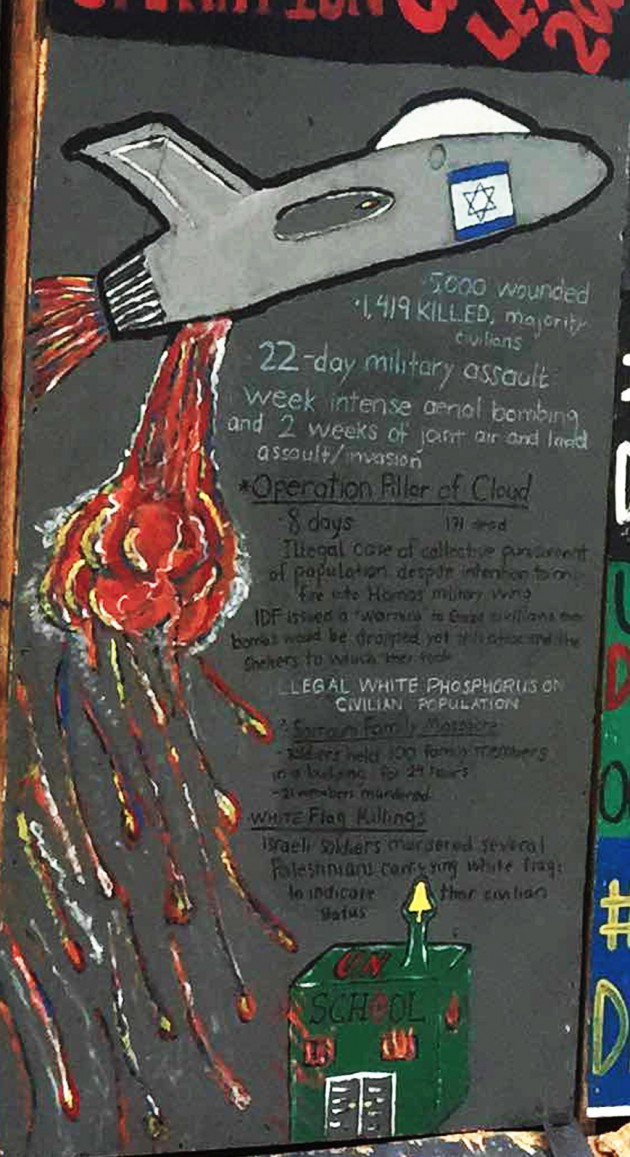 OPERATION
5000 wounded
·1,419 KILLED, majority
civilians
22-day military assault
week intense aerial bombing
and 2 weeks of joint air and land
assault/invasion
*Operation Pillar of Cloud
-8 days 171 dead
Illegal case of collective punishment
of population despite intention to only
fire into Hamas' military wing
IDF issued a "warning" to Gaza civilians
bombs would be dropped yet the
shelters to which they
LLEGAL WHITE PHOSPHORUS ON
CIVILIAN POPULATION
Samouni Family Massacre
-soldiers held 100 family members
in a building for 24 hours
-21 members murdered
WHITE Flag Killings
Israeli soldiers murdered several
Palestinians carrying white flags
to indicate their civilian
status
UN
SCHOOL
#